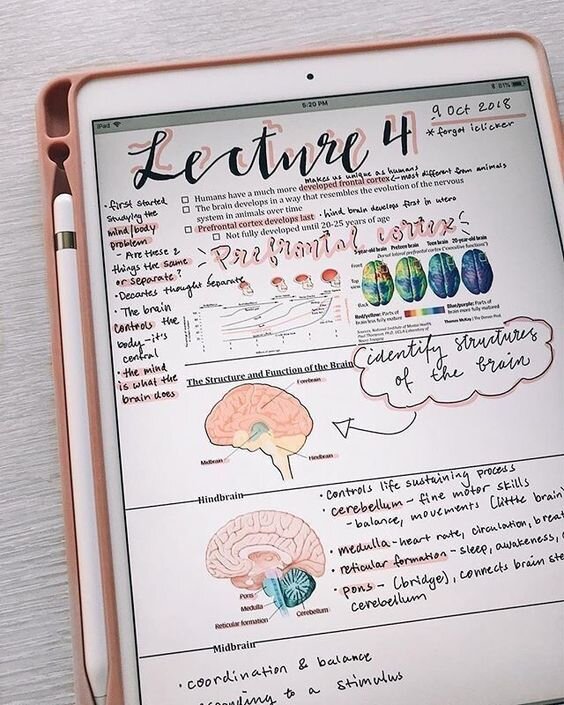 iPad
5:20 PM
81%
Lecture 4
9 Oct 2018
* forgot iclicker
makes us unique as humans
Humans have a much more developed frontal cortex ← most different from animals
The brain develops in a way that resembles the evolution of the nervous
system in animals over time
Prefrontal cortex develops last · hind brain develops first in utero
Not fully developed until 20-25 years of age
Prefrontal cortex
• first started
studying the
mind/body
problem
- Are these 2
things the same
or separate?
• Decartes thought separate
• The brain
controls the
body - it's
central
• the mind
is what the
brain does
5-year-old brain Preteen brain Teen brain 20-year-old brain
Dorsal lateral prefrontal cortex ("executive functions")
Front
Top
view
Back
Red/yellow: Parts of
brain less fully mature
Blue/purple: Parts of
brain more fully matured
Sources: National Institute of Mental Health;
Paul Thompson, Ph.D., UCLA Laboratory of
Neuro Imaging
Thomas McKay | The Denver Post
identify structures
of the brain
The Structure and Function of the Brain
Forebrain
Midbrain
Hindbrain
Hindbrain
• controls life sustaining process
• cerebellum - fine motor skills
- balance, movements (little brain
• medulla - heart rate, circulation,
• reticular formation - sleep, awareness,
• pons - (bridge), connects brain
cerebellum
Pons
Medulla
Reticular formation
Cerebellum
Midbrain
• coordination & balance
to a stimulus